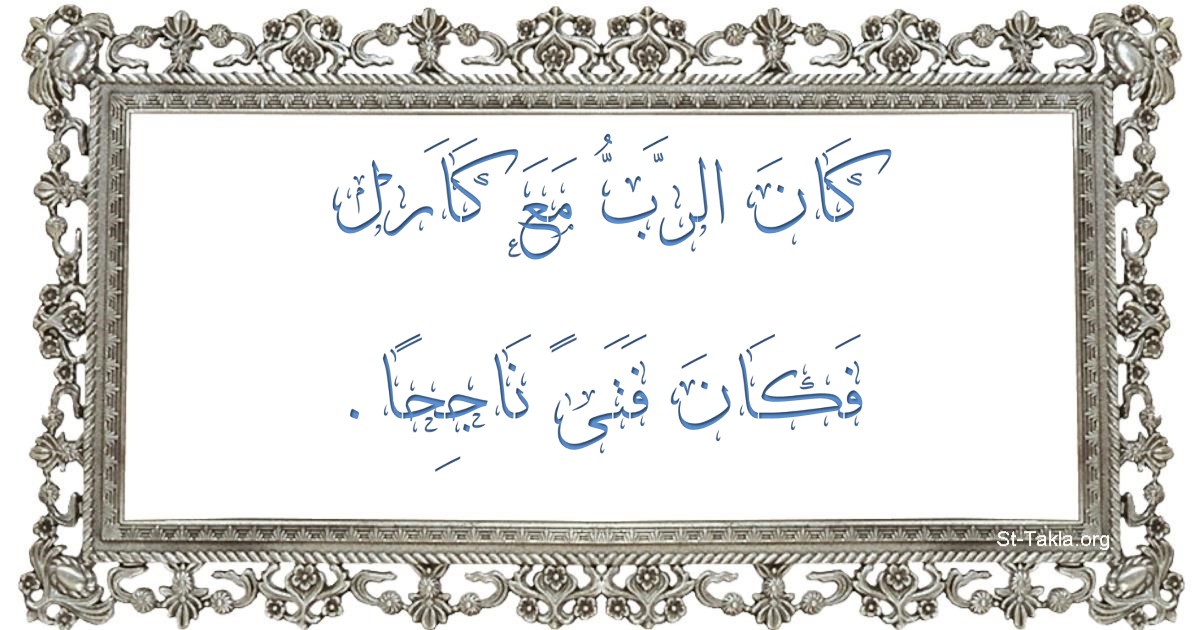 كَانَ الرَّبُّ مَعَ كَارَل
فَكَانَ فَتَىً نَاجِحًا.
St-Takla.org